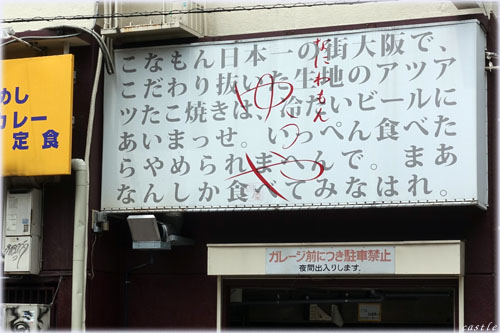 こなもん日本一の街大阪で、
こだわり抜いた生地のアツア
ツたこ焼きは、冷たいビールに
あいまっせ。いっぺん食べた
らやめられまへんで。まあ
なんしか食べてみなはれ。
なにわもん
ゆうや
めし
カレー
定食
ガレージ前につき駐車禁止
夜間出入りします。
castle